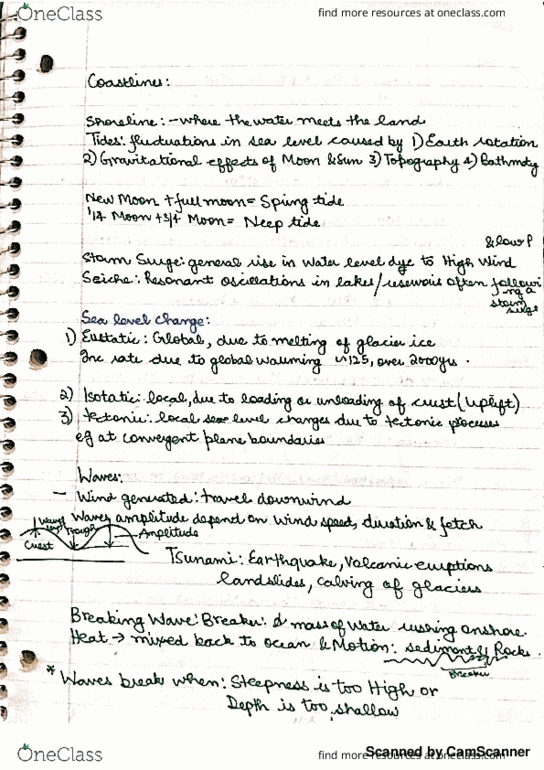 OneClass
find more resources at oneclass.com
Coastlines:
Shoreline: - where the water meets the land
Tides: fluctuations in sea level caused by 1) Earth rotation
2) Gravitational effects of Moon & Sun 3) Topography 4) Bathmety
New Moon + full moon = Spring tide
1/4 Moon + 3/4 Moon = Neep tide
& low P
Storm Surge: general rise in water level dye to High Wind
Seiche: Resonant oscillations in lakes/reservois often followi
ng a
storm
surge
Sea level change:
1) Eustatic: Global, due to melting of glacier ice
Inc rate due to global warming ~125, over 2000yrs.
2) Isotatic: local, due to loading or unloading of crust (Uplift)
3) tectonic: local sea level changes due to tectonic processes
eg at convergent plane boundaries
Waves:
- Wind generated: travel downwind
Waves amplitude depend on wind speed, duration & fetch
Trough
Amplitude
Crest
Tsunami: Earthquake, Volcanic eruptions
landslides, calving of glaciers
Breaking Wave: Breaker: mass of water rushing onshore.
Heat → mixed back to ocean & Motion: sediment & Rocks.
Breaker
* Waves break when: Steepness is too High or
Depth is too shallow
OneClass
find more resources at oneclass.com
Scanned by CamScanner